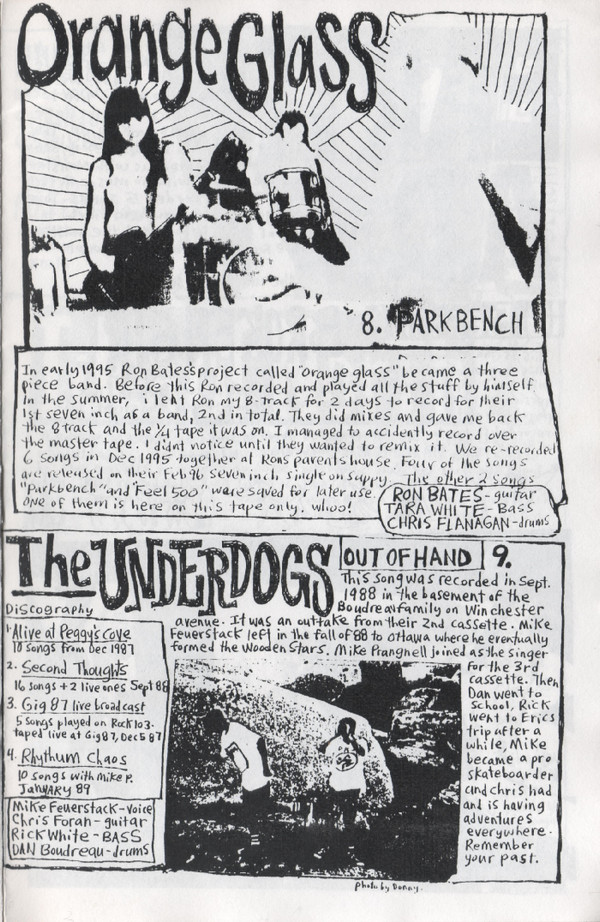 Orange Glass
8. PARKBENCH
In early 1995 Ron Bates's project called "orange glass" became a three
piece band. Before this Ron recorded and played all the stuff by himself.
In the summer, i leht Ron my 8-track for 2 days to record for their
1st seven inch as a band, 2nd in total. They did mixes and gave me back
the 8track and the 1/4 tape it was on. I managed to accidently record over
the master tape. I didnt notice until they wanted to remix it. We re-recorded
6 songs in Dec 1995 together at Rons parents house. Four of the songs
are released on their Feb 96 seven inch single on sappy. The other 2 songs
"Parkbench" and "Feel 500" were saved for later use.
ONE of them is here on this tape only. whoo!
RON BATES - guitar
TARA WHITE - BASS
CHRIS FLANAGAN - drums
The UNDERDOGS
OUT OF HAND 9.
This song was recorded in Sept.
1988 in the basement of the
Boudreau family on Winchester
avenue. It was an outtake from their 2nd cassette. Mike
Feuerstack left in the fall of 88 to Ottawa where he eventually
formed the Wooden Stars. Mike Prangnell joined as the singer
for the 3rd
cassette. Then
Dan went to
School, Rick
went to Erics
trip after a
while, Mike
became a pro
skateboarder
and chris had
and is having
adventures
everywhere.
Remember
your past.
Discography
1. Alive at Peggy's cove
10 songs from Dec 1987
2. Second Thoughts
16 songs + 2 live ones Sept 88
3. Gig 87 live broadcast
5 songs played on Rock 103.
taped live at Gig 87, Dec 5 87
4. Rhythum Chaos
10 songs with mike P.
JANUARY 89
Mike Feuerstack - voice
Chris Foran - guitar
Rick White - BASS
DAN Boudreau - drums
photo by Donny.